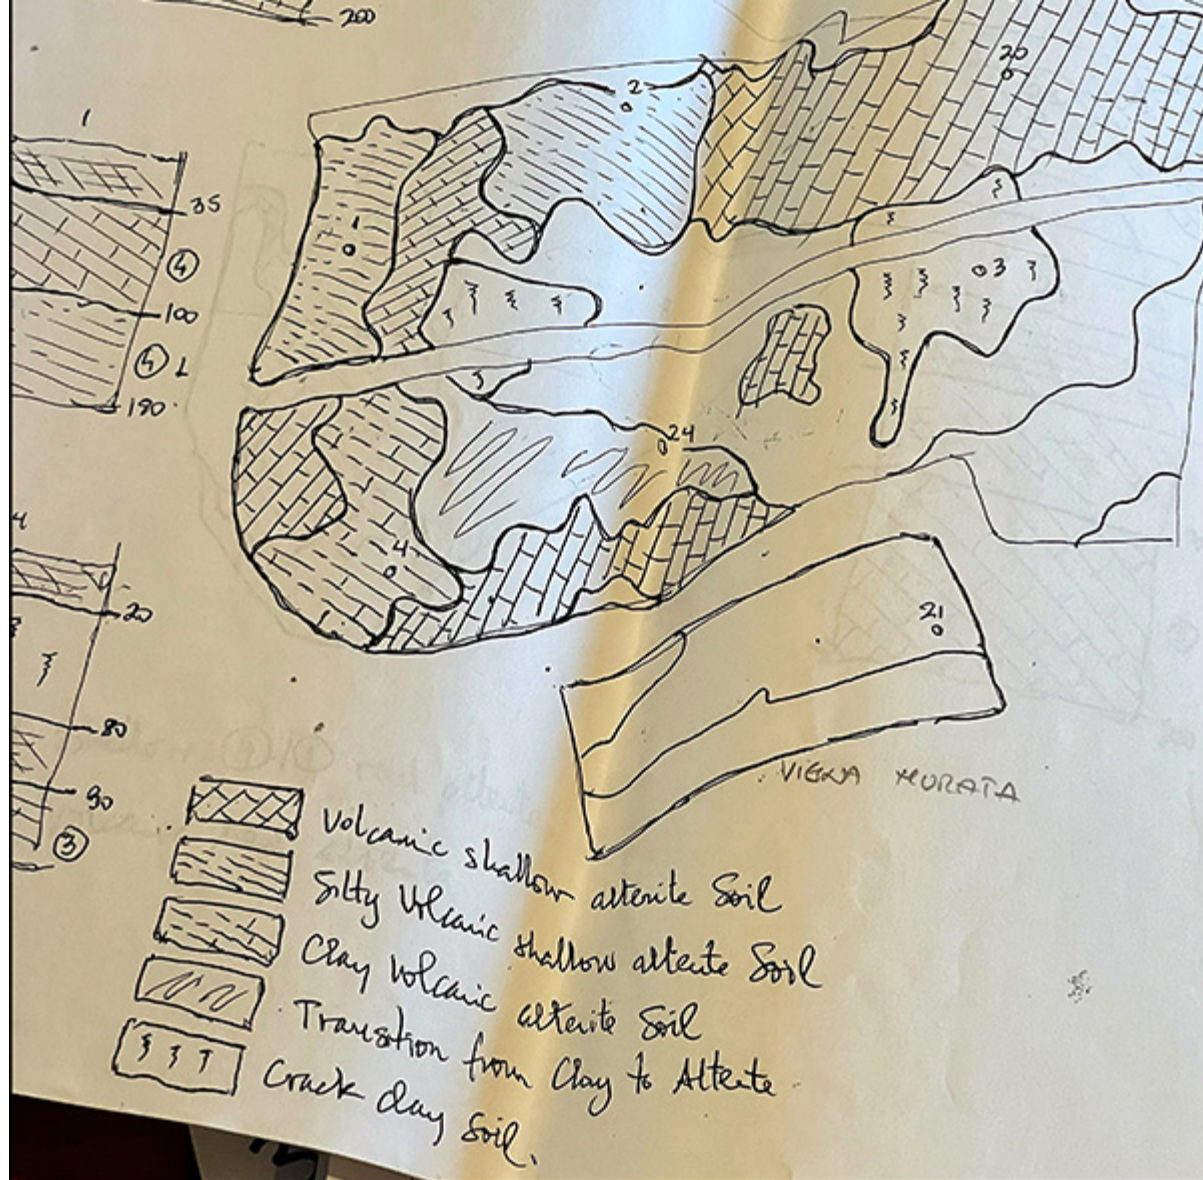 200
1
35
4
100
4 L
190
4
20
80
90
3
2
20
1
3
24
4
21
VIGNA MURATA
Volcanic shallow alterite Soil
Silty Volcanic shallow alterite Soil
Clay Volcanic alterite Soil
Transition from Clay to Alterite
Crack clay Soil.